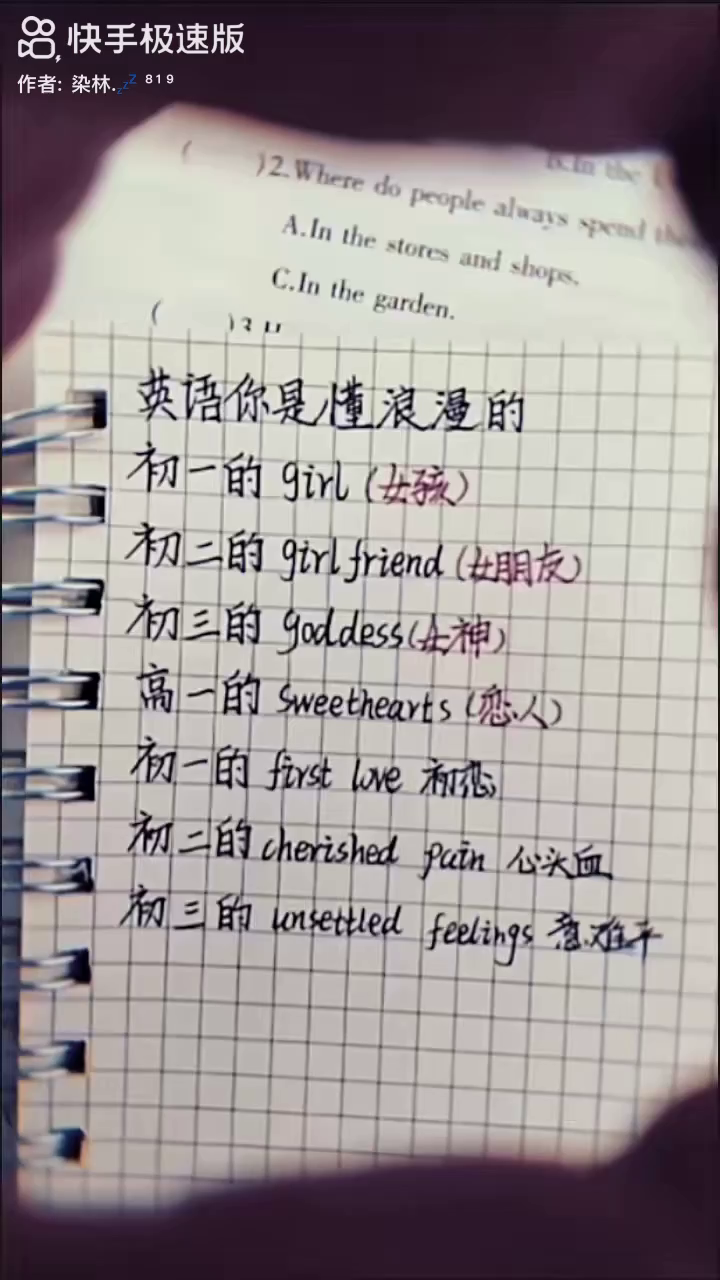 快手极速版
作者: 染林.💤 ⁸¹⁹
B.In the
( )2.Where do people always spend the
A.In the stores and shops.
C.In the garden.
( )3.
英语你是懂浪漫的
初一的 girl (女孩)
初二的 girlfriend (女朋友)
初三的 goddess(女神)
高一的 sweethearts (恋人)
初一的 first love 初恋
初二的 cherished pain 心头血
初三的 unsettled feelings 意难平